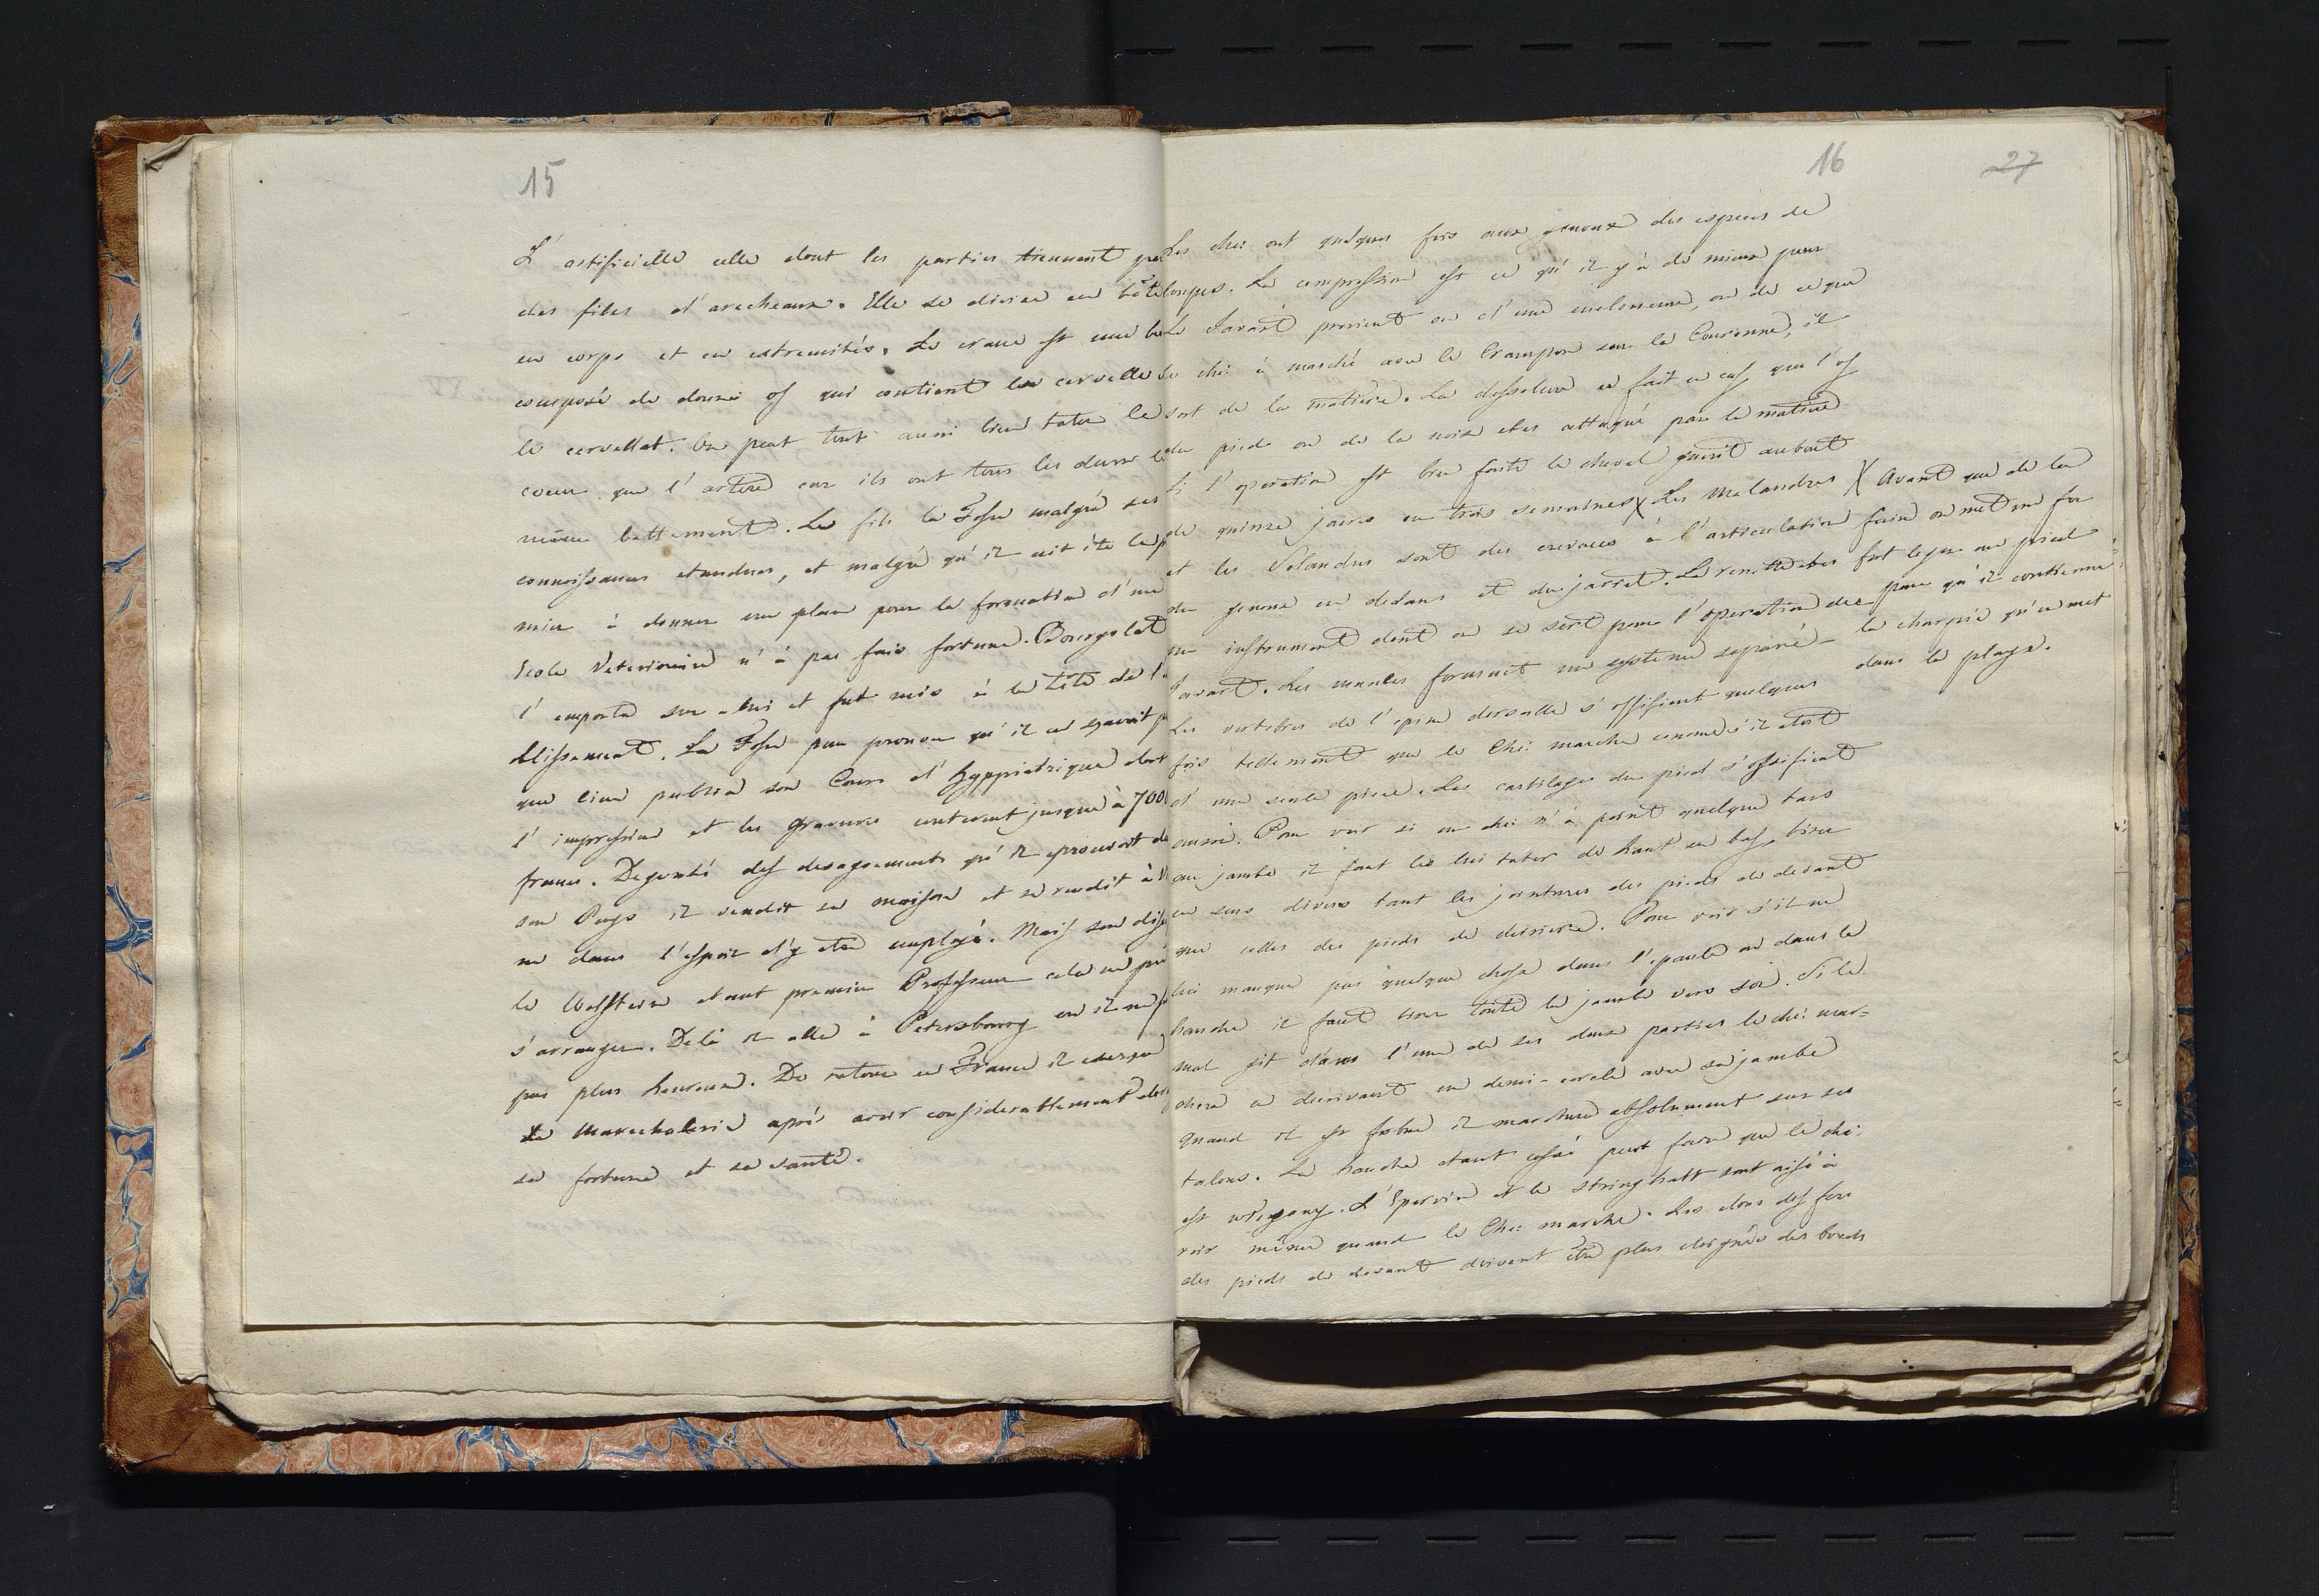 15
L'artificielle celle dont les parties tiennent par
des files d'arecheaux. Elle se divise en tête
en corps et en extremités. Le crane est une bo
composé de douze os qui contient la cervelle
le cervellet. On peut tout aussi bien tater le
coeur que l'artere car ils ont tous les deux le
même battement. Le fils la Fosse malgré ses
connoissances etendues, et malgré qu'il ait été le p
mier à donner un plan pour la formation d'une
Ecole Veterinaire n'à pas fais fortune. Bourgelat
l'emporta sur lui et fut mis à la tête de l'
blissement. La Fosse pour prouver qu'il en sçavoit p
que lieu publia son Cours d'Hyppiatrique dont
l'impression et les gravures couterent jusque à 700
francs. Degouté des desagrements qu'il eprouvoit de
son Pays il vendit sa maison et se rendit à V
ne dans l'espoir d'y etre employé. Mais son dis
le Wolstein etant premier Professeur cela ne pu
s'arranger. De là il alla à Petersbourg ou il ne f
pas plus heureux. De retour en France il exerça
la Marechalerie aprés avoir considerablement der
sa fortune et sa santé.
16 27
Les chx: ont quelques fois aux genoux des especes de
loupes. La compression est ce qu'il y à de mieux pour
Le Javart provient ou d'une enclouure, ou de ce que
le chx: à marché avec le Crampon sur la Couronne, il
sort de la matiere. La dessolure se fait en cas que l'os
du pied ou de la noix etes attaqué par la matiere
Si l'operation est bien faite le cheval guerit au bout
de quinze jours ou trois semaines X Les Malandres
et les Solandres sont des crevasses à l'articulation
du genoux en dedans et du jarret. La renette est
un instrument dont on se sert pour l'operation du
Javart. Les muscles forment un systeme separé
Les vertebres de l'epine dorsalle s'ossifient quelques
fois tellement que le Chx: marche comme s'il etoit
d'une seule piece. Les cartilages du pied s'ossifient
aussi. Pour voir si un chx: n'à point quelque tare
au jambe il faut les lui tater de haut en bas, bien
en sens divers tant les jointures des pieds de devant
que celles des pieds de derriere. Pour voir s'il ne
lui manque pas quelque chose dans l'epaule ou dans la
hanche il faut tirer toute la jambe vers soi. Si le
mal git dans l'une de ses deux parties le chx: mar=
chera en decrivant un demi-cercle avec sa jambe
Quand il est forbu il marchera absolument sur ses
talons. La hanche etant cassée peut faire que le chx:
est . L'Epervin et le stringhalt sont aisé à
voir même quand le Chx: marche. Les clous des fers
des pieds de devant doivent être plus eloignés des bords
X Avant que de la
faire on met un fer
fort leger au pied
pour qu'il contienne
la charpie qu'on met
dans la playe.